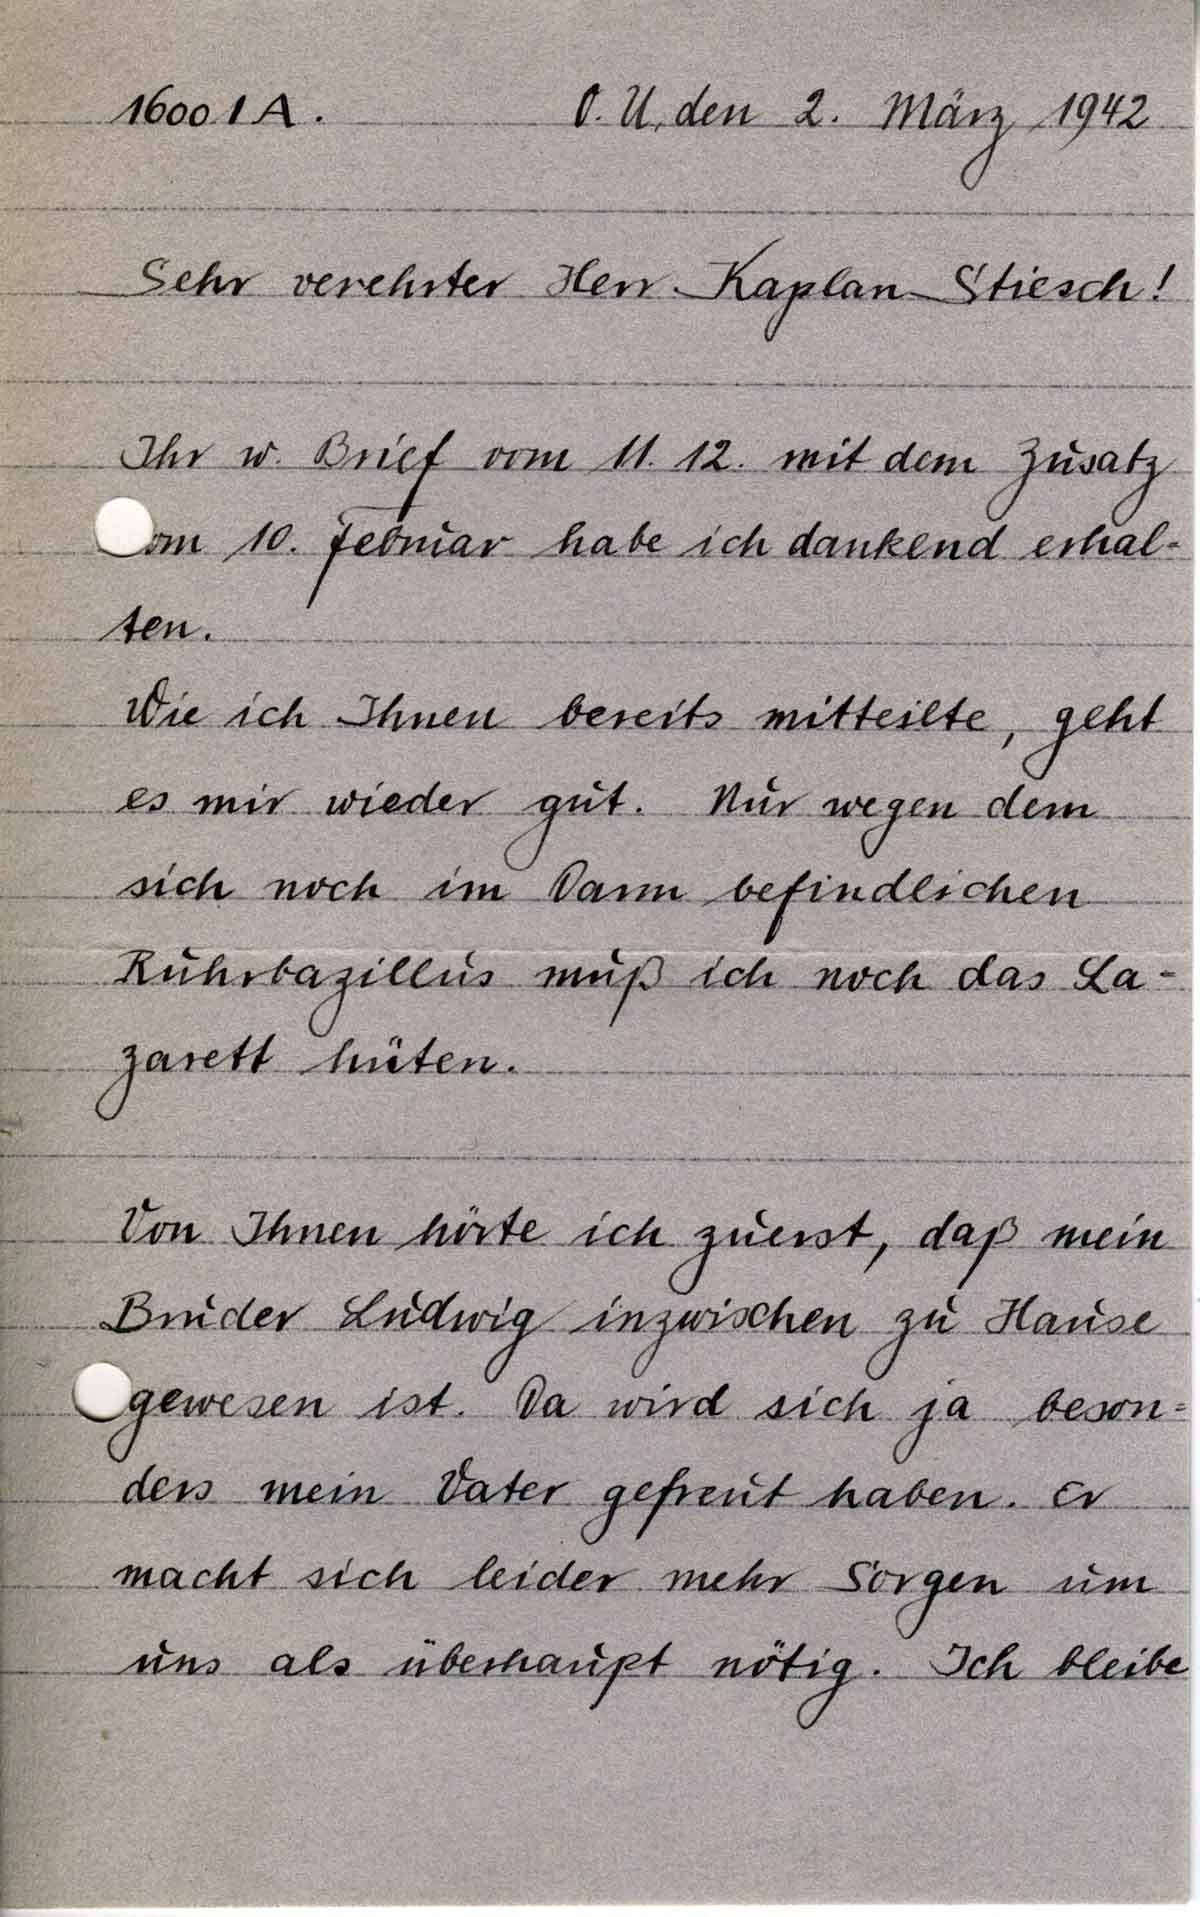 16001A. O. U., den 2. März 1942
Sehr verehrter Herr Kaplan Stiesch!
Ihr w. Brief vom 11. 12. mit dem Zusatz
vom 10. Februar habe ich dankend erhal-
ten.
Wie ich Ihnen bereits mitteilte, geht
es mir wieder gut. Nur wegen dem
sich noch im Darm befindlichen
Ruhrbazillus muß ich noch das La-
zarett hüten.
Von Ihnen hörte ich zuerst, daß mein
Bruder Ludwig inzwischen zu Hause
gewesen ist. Da wird sich ja beson-
ders mein Vater gefreut haben. Er
macht sich leider mehr Sorgen um
uns als überhaupt nötig. Ich bleibe